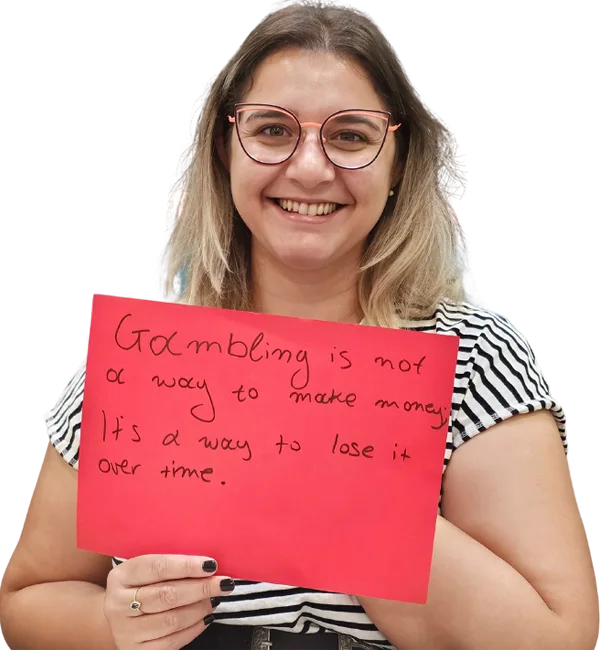 Gambling is not
a way to make money;
It's a way to lose it
over time.